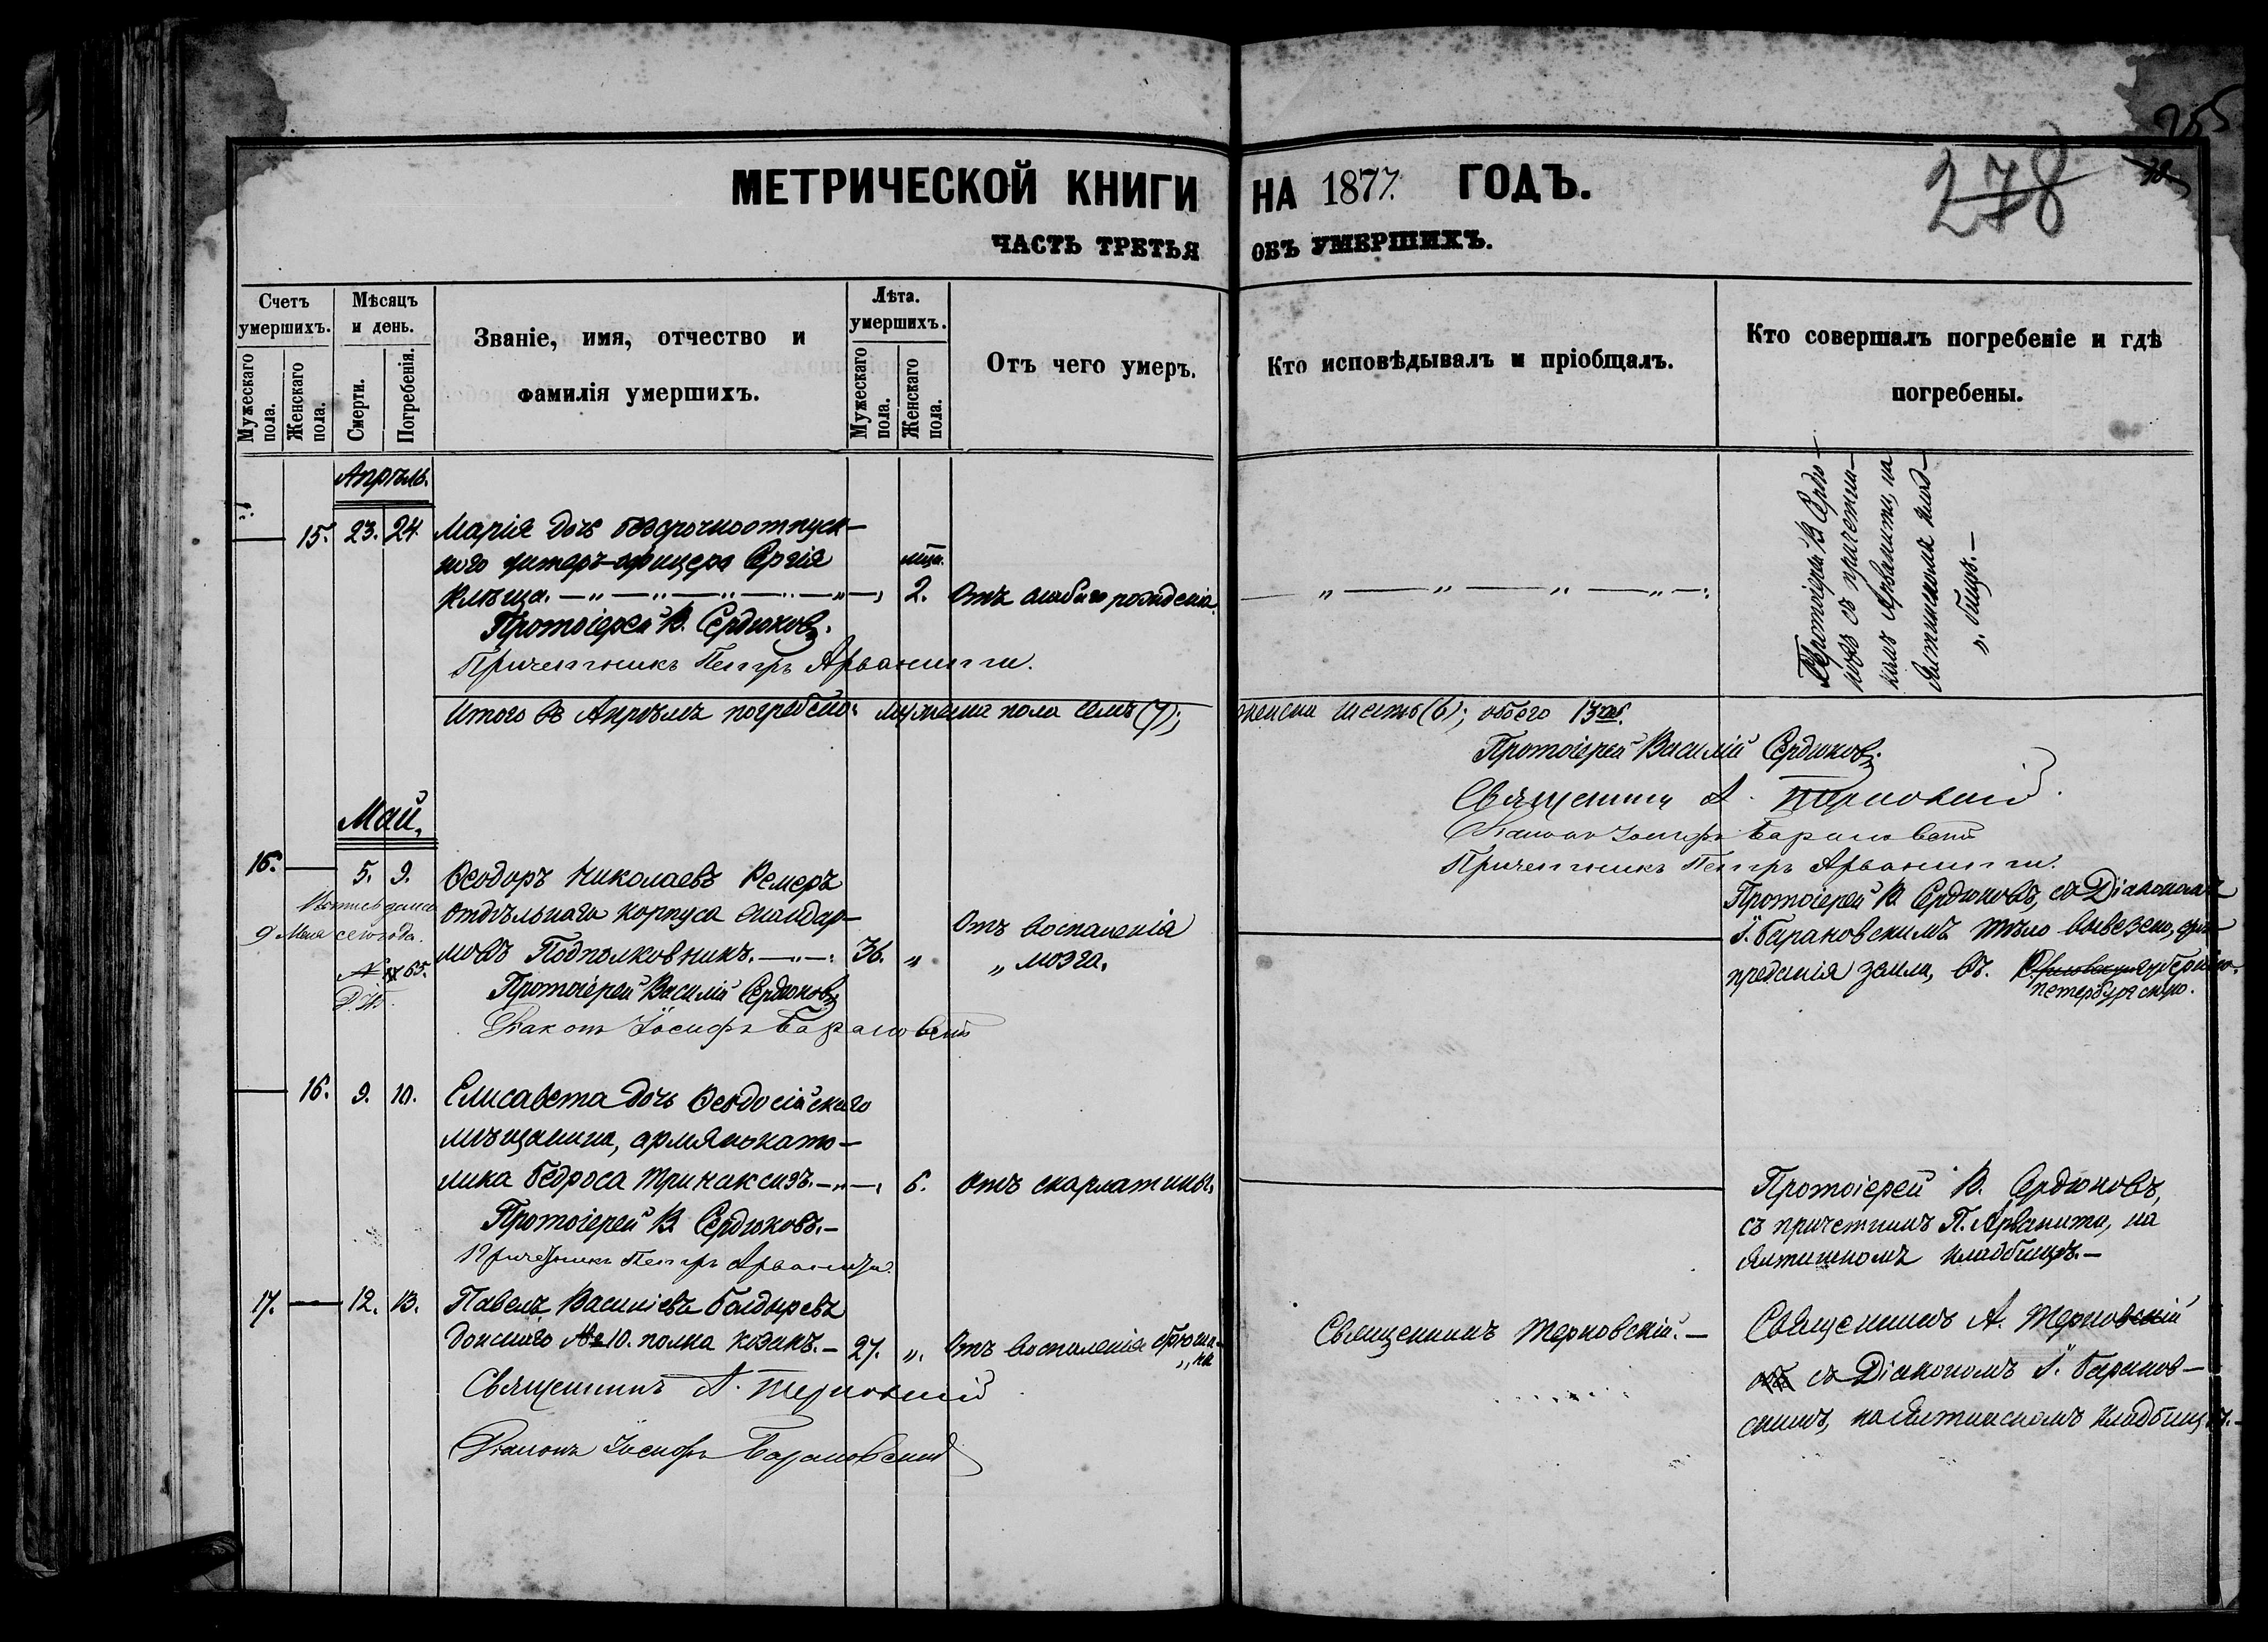 255
278
МЕТРИЧЕСКОЙ КНИГИ НА 1877. ГОДЪ.
ЧАСТЬ ТРЕТЬЯ ОБЪ УМЕРШИХЪ.
Счетъ умершихъ.
Мужескаго пола.
Женскаго пола.
Мѣсяцъ и день.
Смерти.
Погребенія.
Званіе, имя, отчество и
фамилія умершихъ.
Лѣта.
умершихъ.
Мужескаго пола.
Женскаго пола.
Отъ чего умеръ.
Кто исповѣдывалъ и пріобщалъ.
Кто совершалъ погребеніе и гдѣ
погребены.
Апрѣль.
15. 23. 24. Марія дочь безсрочноотпуск-
ного унтеръ-офицера Сергія
2. Отъ слабаго рожденія.
Протоіерей В. Сердюковъ.
Причетникъ Петръ Арванити.
Протоіерей В. Сердю-
ковъ съ причетни-
комъ Арванити, на
Ялтинскомъ клад-
„ бищѣ.-
Итого въ Апрѣлѣ погребено: мужеска пола семь (7); женска шесть (6); обоего 13
Протоіерей Василій Сердюковъ
Священникъ А. Терновскій.
Діаконъ Іосифъ Барановскій
Причетникъ Петръ Арванити.
Май.
16. 5. 9. Ѳеодоръ Николаевъ Ремеръ
отдѣльнаго корпуса жандар-
мовъ Подполковникъ. 36. „
Отъ воспаленія
„ мозга.
9 Мая сего года.
№ 65.
Протоіерей Василій Сердюковъ
Діаконъ Іосифъ Барановскій
Протоіерей В. Сердюковъ, съ Діакономъ
І. Барановскимъ тѣло вывезено, для
преданія земли, въ губернію.
петербургскую.
16. 9. 10. Елисавета дочь Ѳеодосійскаго
мѣщанина, армянокато-
лика Бедроса Тринаксизъ. 6. Отъ скарлатины.
Протоіерей В. Сердюковъ.-
Причетникъ Петръ Арванити.
Протоіерей В. Сердюковъ,
съ причетникомъ П. Арванити, на
Ялтинскомъ кладбищѣ.-
17. 12. 13. Павелъ Василіевъ Болдыревъ
донскаго № 10. полка козакъ.- 27. „. Отъ воспаленія брюши-
„ны
Священникъ А. Терновскій
Діаконъ Іосифъ Барановскій
Священникъ Терновскій.-
Священникъ А. Терновскій
съ Діакономъ І. Баранов-
скимъ, на Ялтинскомъ кладбищѣ.-